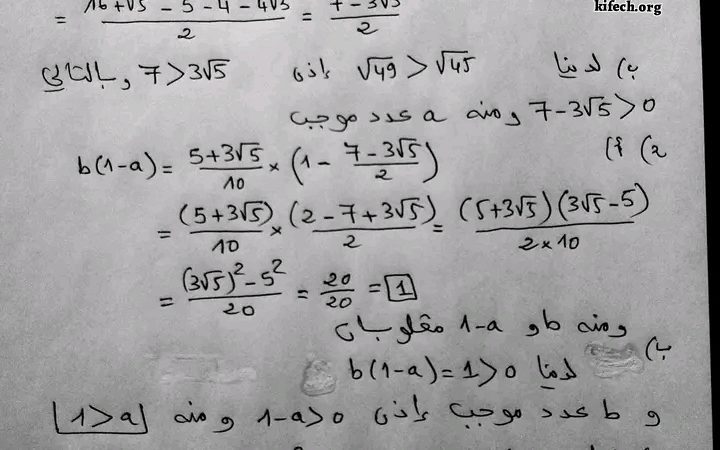 kifech.org
= (16+√5 - 5 - 4 - 4√5)/2 = (7-3√5)/2
ب) لدينا √49 > √45 إذن 7 > 3√5 وبالتالي
7-3√5 > 0 ومنه a عدد موجب
2) أ) b(1-a) = (5+3√5)/10 × (1 - (7-3√5)/2)
= (5+3√5)/10 × (2-7+3√5)/2 = (5+3√5)(3√5-5)/(2×10)
= ((3√5)² - 5²)/20 = 20/20 = 1
ومنه b و 1-a مقلوبان
ب) لدينا b(1-a)=1>0
و b عدد موجب إذن 1-a>0 ومنه 1>a